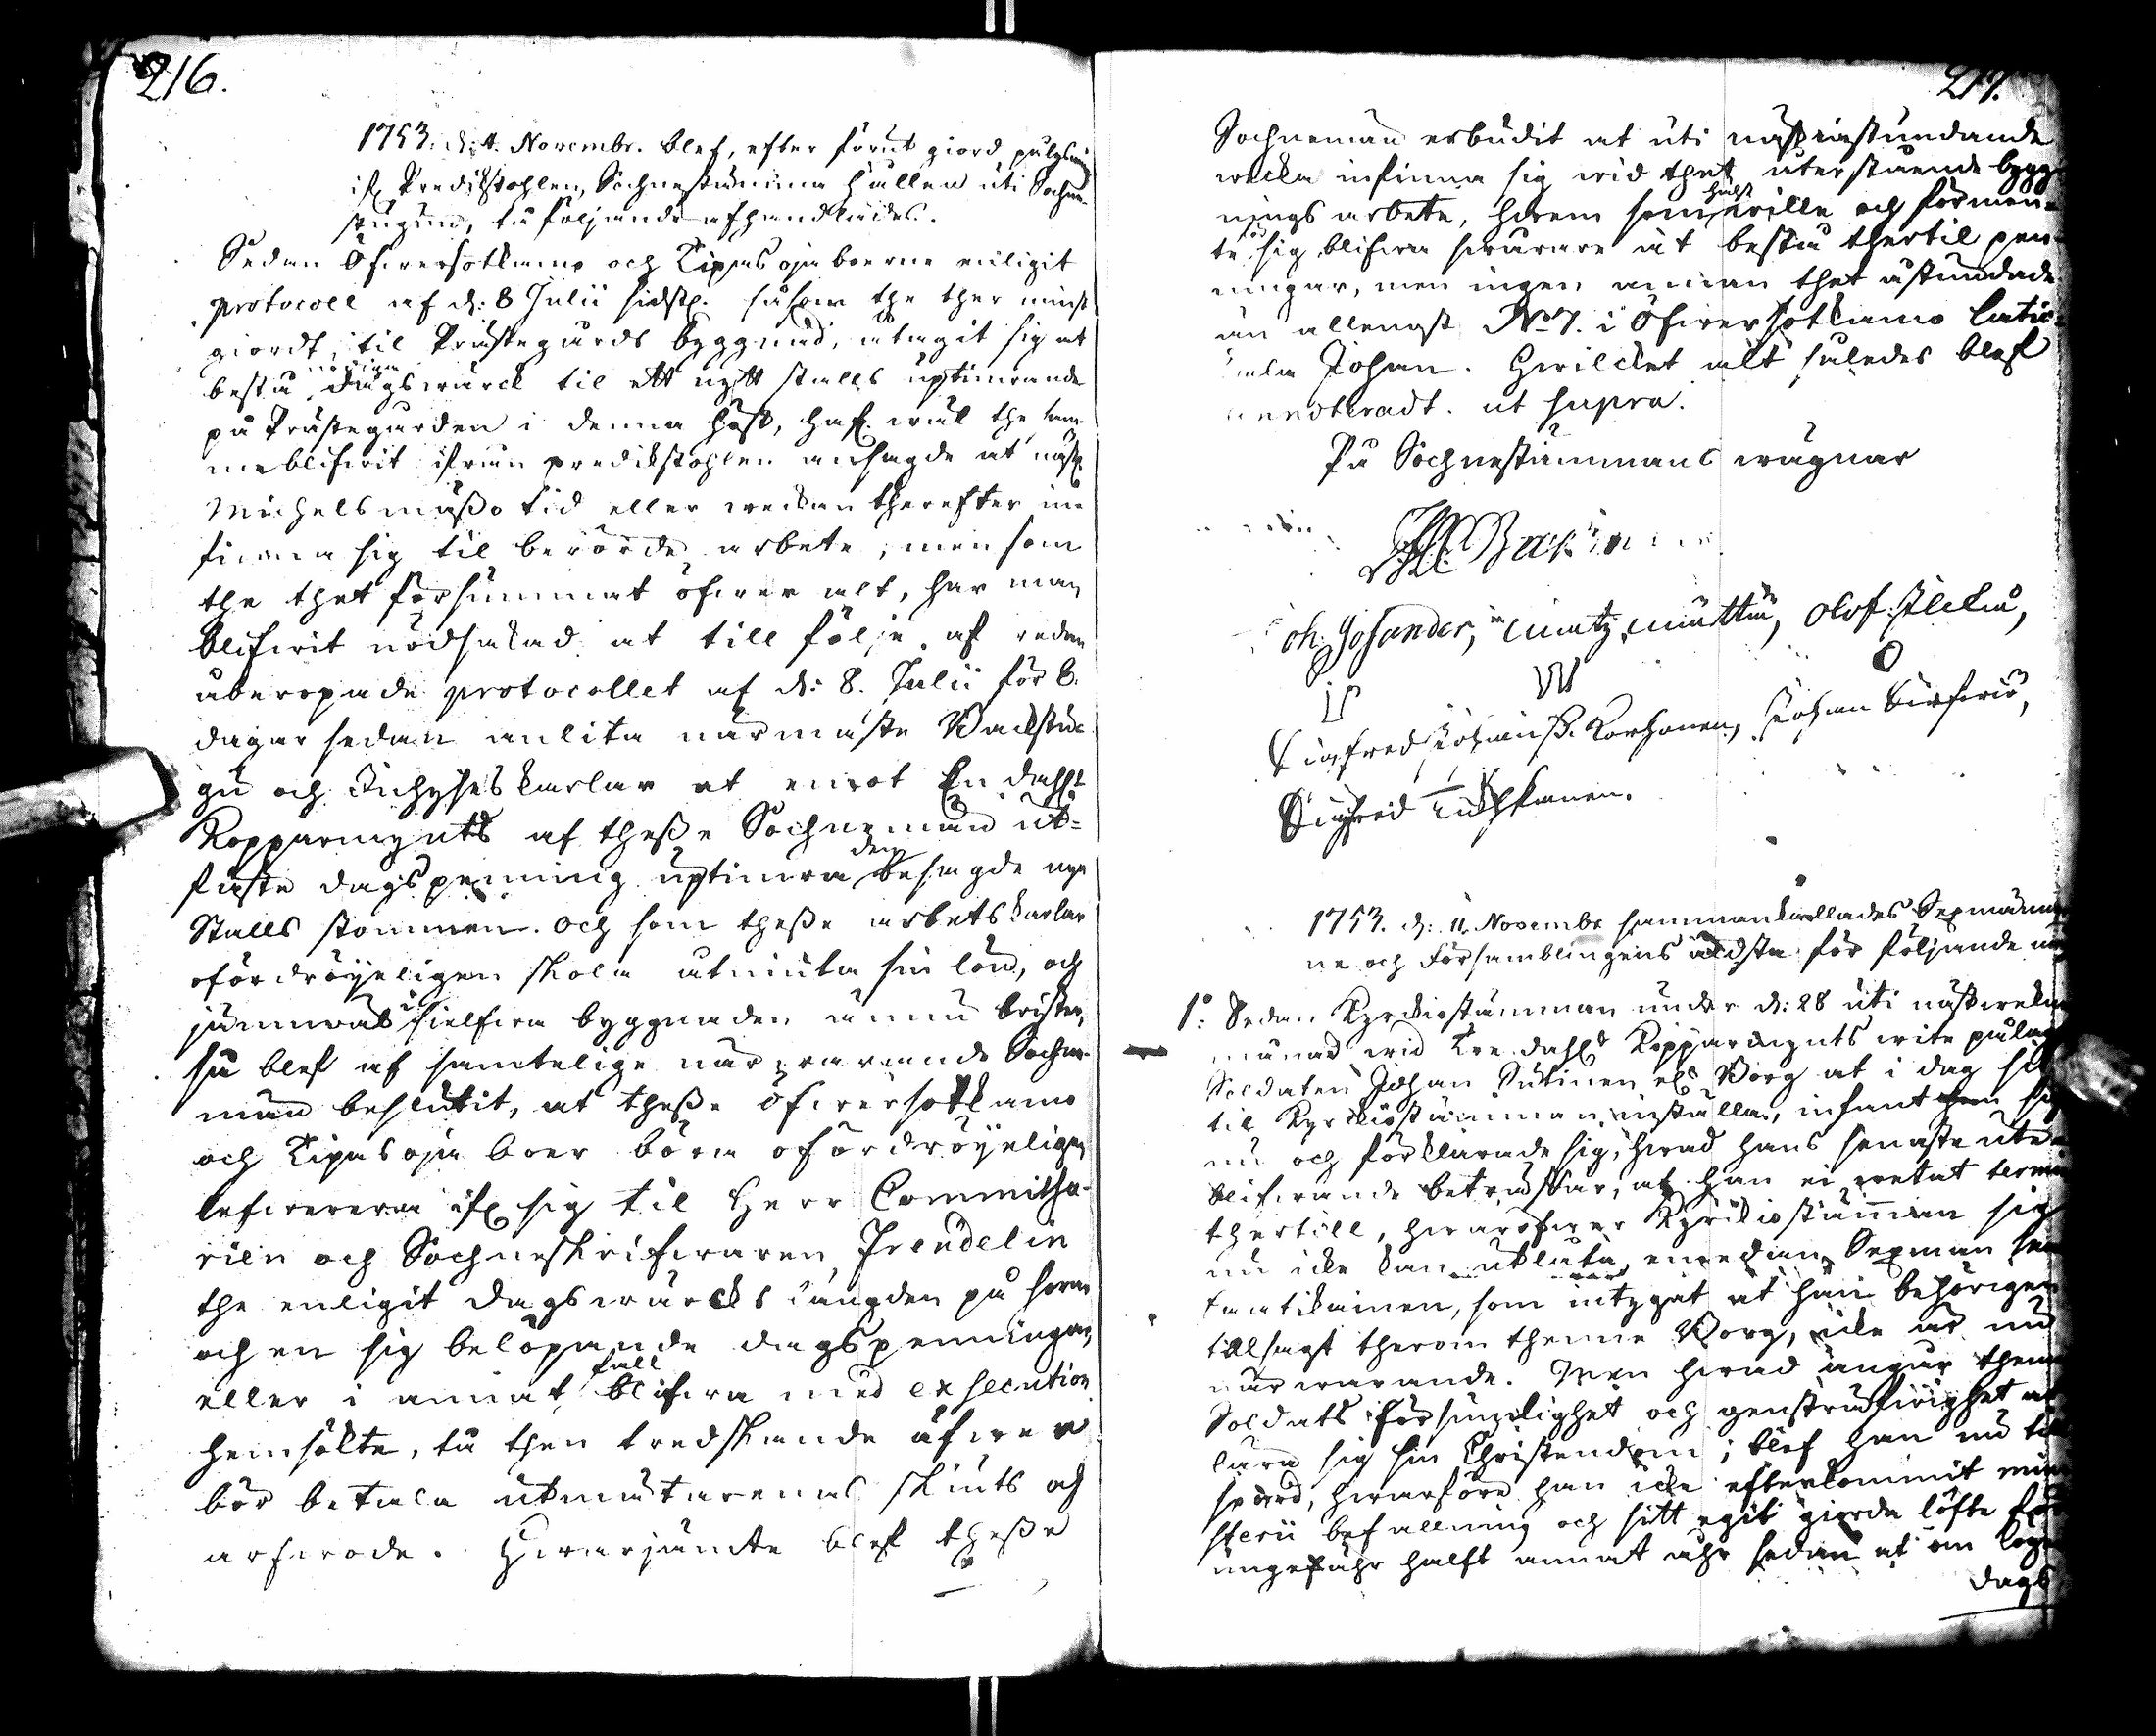 216.
1753. d: 4. Novembr. blef, efter förut giord pulysning
ifr Predikstohlen, Sochnestämma hållen uti Sochne-
stugun, tå följande afhandlades.
Sedan Öfwersotkamo och Tipasoja boerne enligit
protocoll af d: 8 Julii sidstl. såsom the ther minst
giordt til Prästegårds byggnad, åtagit sig at
bestå nödiga dagswärck til ett nytt stalls uptimrande
på Prästegården i denna höst, haf. wäl the kom-
me blifwit ifrån predikstohlen ansagde at näst
Michelsmässo tid eller weckan therefter in-
finna sig til berörde arbete, men som
the thet försummat öfwer alt, har man
blifwit nödsakad at till följe af redan
åberopade protocollet af d: 8. Julii för 8.
dagar sedan anlita närmaste Backstu-
gu och Inhyseskarlar at emot En dahl.
Kopparmynts af thesse Sochnemän ut-
fäste dagspenning uptimra den besagde nya
Stalls stommen. Och som thesse arbetskarlar
ofördröyeligen skola utniuta sin lön, och
jämwäl i sielfwa byggnaden ännu brister,
så blef af samtelige närwarande Sochne-
män beslutit, at thesse öfwersotkamo
och Tipasoja boer böra ofördröyeligen
lefwerera ifr sig til Herr Commissa-
rien och Sochneskrifwaren Frendelin
the enligit dagswärcks längden på hwar
och en sig belöpande dagspenningar,
eller i annat fall blifwa med exsecution
hemsökte, tå then tredskande äfwen
bör betala utmätarenas skiuts och
arfwode. Hwarjämte blef thesse
217.
Sochnemän erbudit at uti nästinstundande
wecka infinna sig wid thet återstående bygg-
nings arbete, hwem som hälst wille och förmen-
te sig blifwa swårare at bestå thertil pen-
ningar, men ingen annan thet åstundade
än allenast No 7. i Öfwersotkamo
Johan. Hwilcket alt således blef
ut supra.
På Sochnestämmans wägnar
Joh. Josander, Matz Määttä, Olof
Sigfred Johanss. Korhonen, Johan
Sigfred
1753. d: 11. Novembr sammankallades Sexmän-
ne och Församblingens äldsta för följande
1o: Sedan Kyrckiostämman under d: 28 uti nästwekne
månad wid Tre dahlr Kopparmynts wite pålagt
Soldaten Johan Sutinen els Borg at i dag sig
til Kyrckiostämman inställa, infant han sig
nu och förklarade sig, hwad hans senaste ute-
blifwande beträffar, at han ei wetat termin
thertill, hwaröfwer Kyrckiostämman sig
nu icke kan utlåta, emedan Sexman
Tartikainen, som intygat at han behörigen
tillsagt therom thenne Borg, icke är nu
närwarande. Men hwad angår thenna
Soldats försumlighet och genstridighet at
lära sig sin Christendom; blef han nu til-
spord, hwarföre han icke efterkommit mini-
sterii befallning och sitt egit giorda löfte för
ungefähr halft annat åhr sedan at om
dags